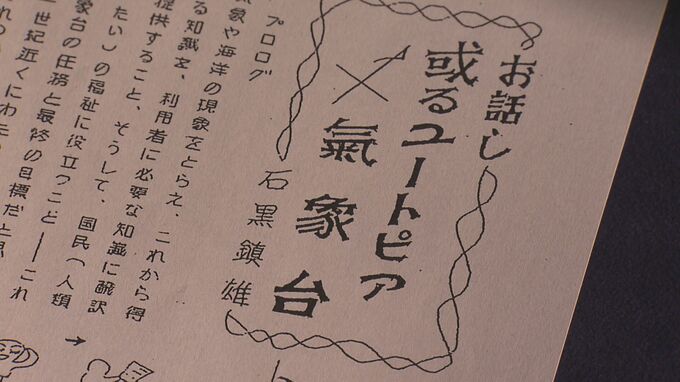 お話し
或るユートピア
×氣象台
石黒鎮雄
プロローグ
象や海洋の現象をとらえ、これから得
る知識を、利用者に必要な知識に翻訳
提供すること、そうして、国民（人類
たい）の福祉に役立つこと──これ
象台の任務と最終の目標だと思
世紀近くにわた